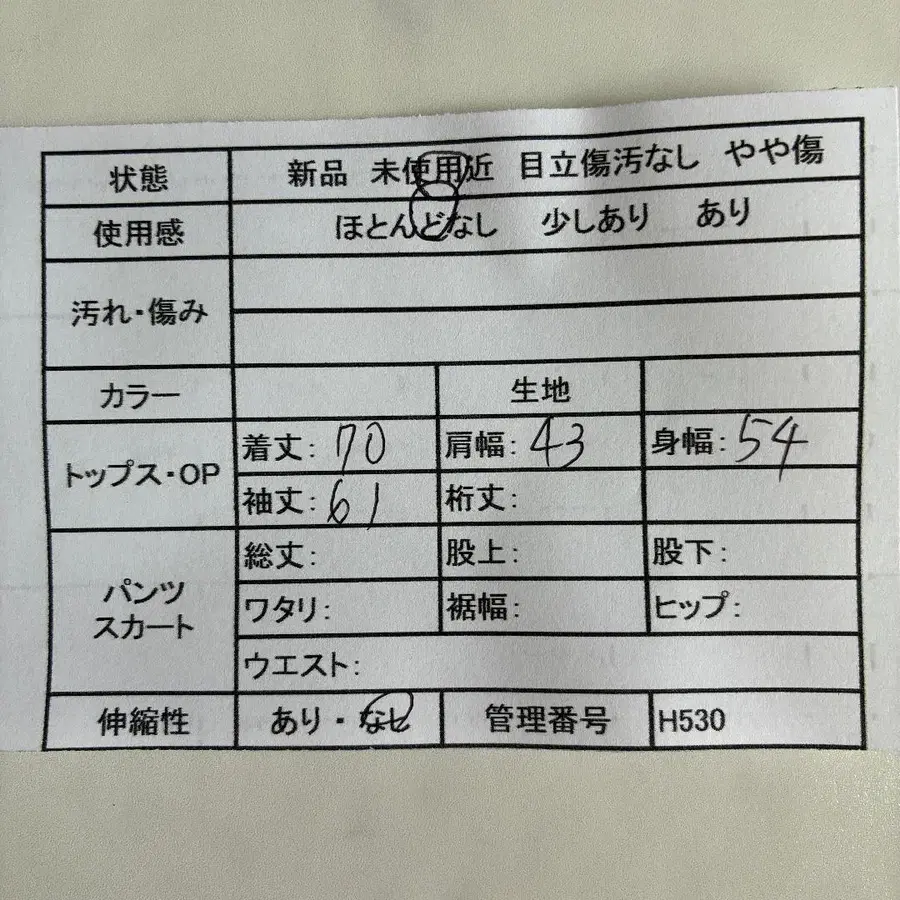 状態 新品 未使用近 目立傷汚なし やや傷
使用感 ほとんどなし 少しあり あり
汚れ・傷み
カラー 生地
トップス・OP
着丈: 70 肩幅: 43 身幅: 54
袖丈: 61 裄丈:
パンツ
スカート
総丈: 股上: 股下:
ワタリ: 裾幅: ヒップ:
ウエスト:
伸縮性 あり・なし 管理番号 H530